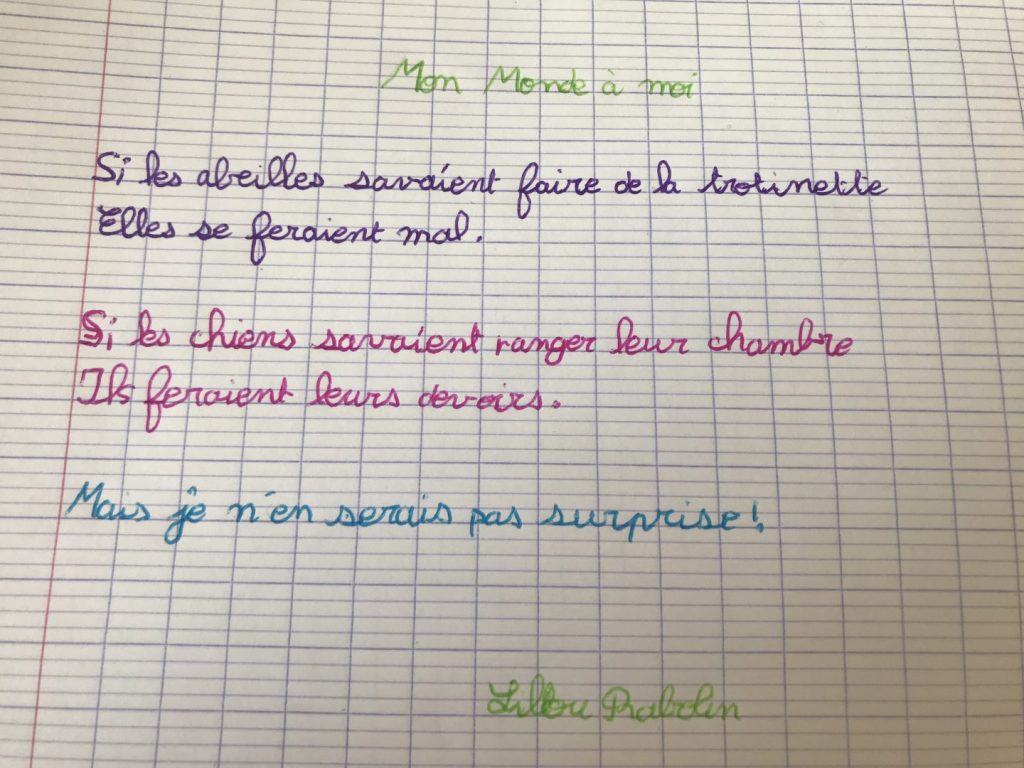 Mon Monde à moi
Si les abeilles savaient faire de la trotinette
Elles se feraient mal.
Si les chiens savaient ranger leur chambre
Ils feraient leurs devoirs.
Mais je n'en serais pas surprise !
Lilou Rabolin